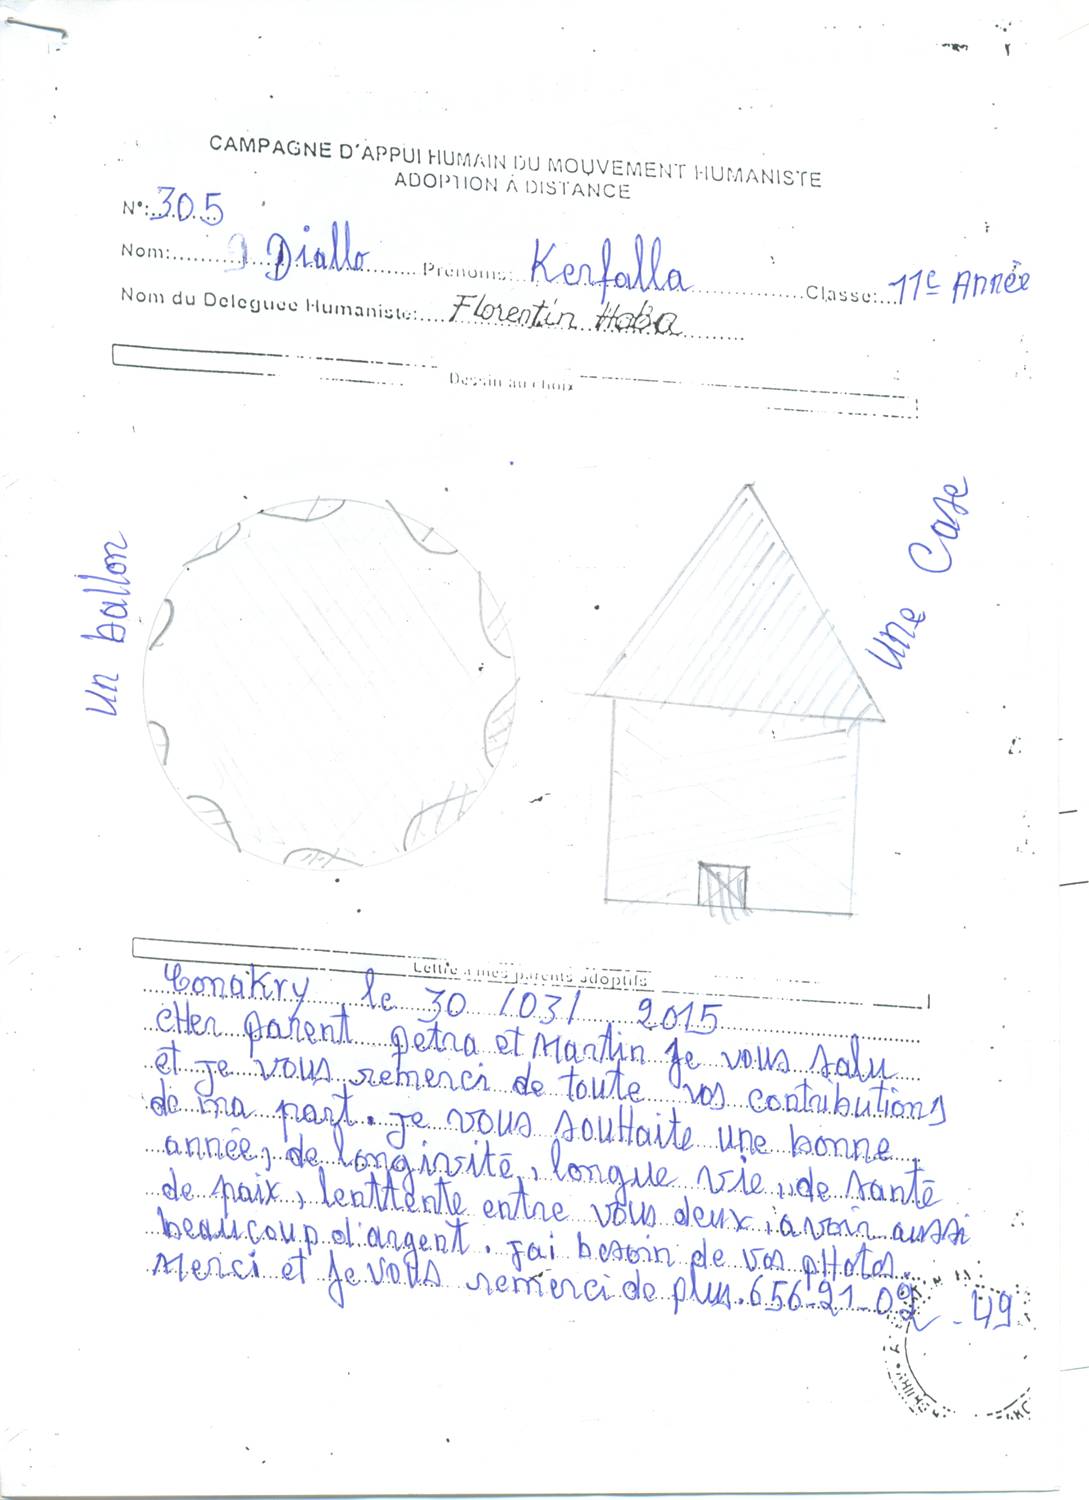 CAMPAGNE D'APPUI HUMAIN DU MOUVEMENT HUMANISTE
ADOPTION À DISTANCE
N°: 305
Nom: Diallo Prénoms: Kerfalla Classe: 11e Année
Nom du Deleguee Humaniste: Florentin Haba
Dessin au choix
Un ballon
Une Case
Lettre a mes parents adoptifs
Conakry le 30 /03/ 2015
cHer parent petra et Martin je vous salu
et je vous remerci de toute vos contributions
de ma part. je vous souHaite une bonne
année, de longivité, longue vie, de santé
de paix, lenttente entre vous deux, avoir aussi
beaucoup d'argent. jai besoin de vos pHotos.
Merci et je vous remerci de plus. 656-21-02-49